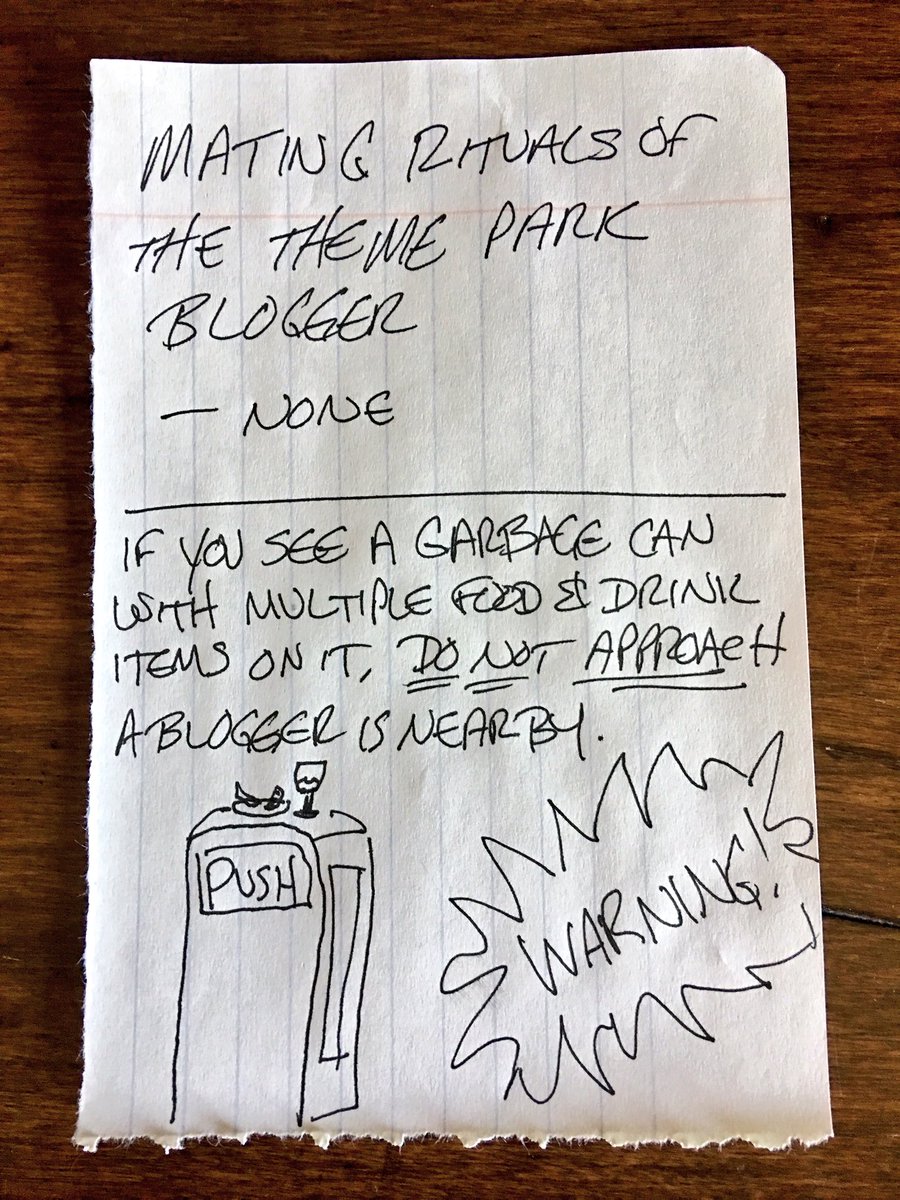 MATING RITUALS OF
THE THEME PARK
BLOGGER
— NONE
IF YOU SEE A GARBAGE CAN
WITH MULTIPLE FOOD & DRINK
ITEMS ON IT, DO NOT APPROACH
A BLOGGER IS NEARBY.
PUSH
WARNING!